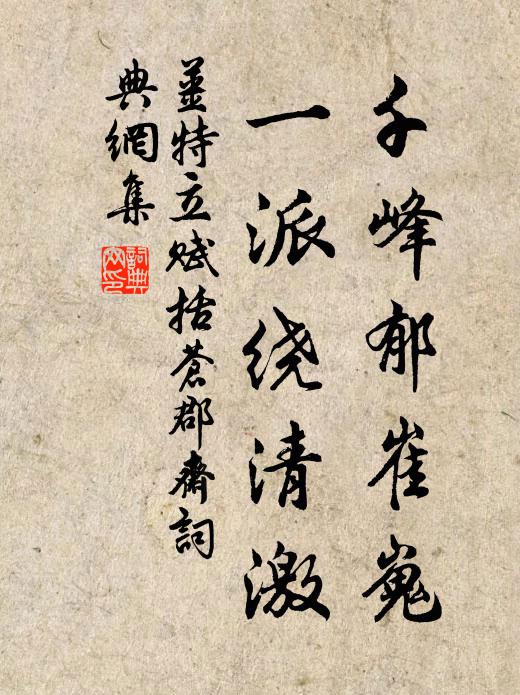 千峰郁崔嵬
一派绕清激
姜特立赋括蒼郡齋詞
典網集
詞典